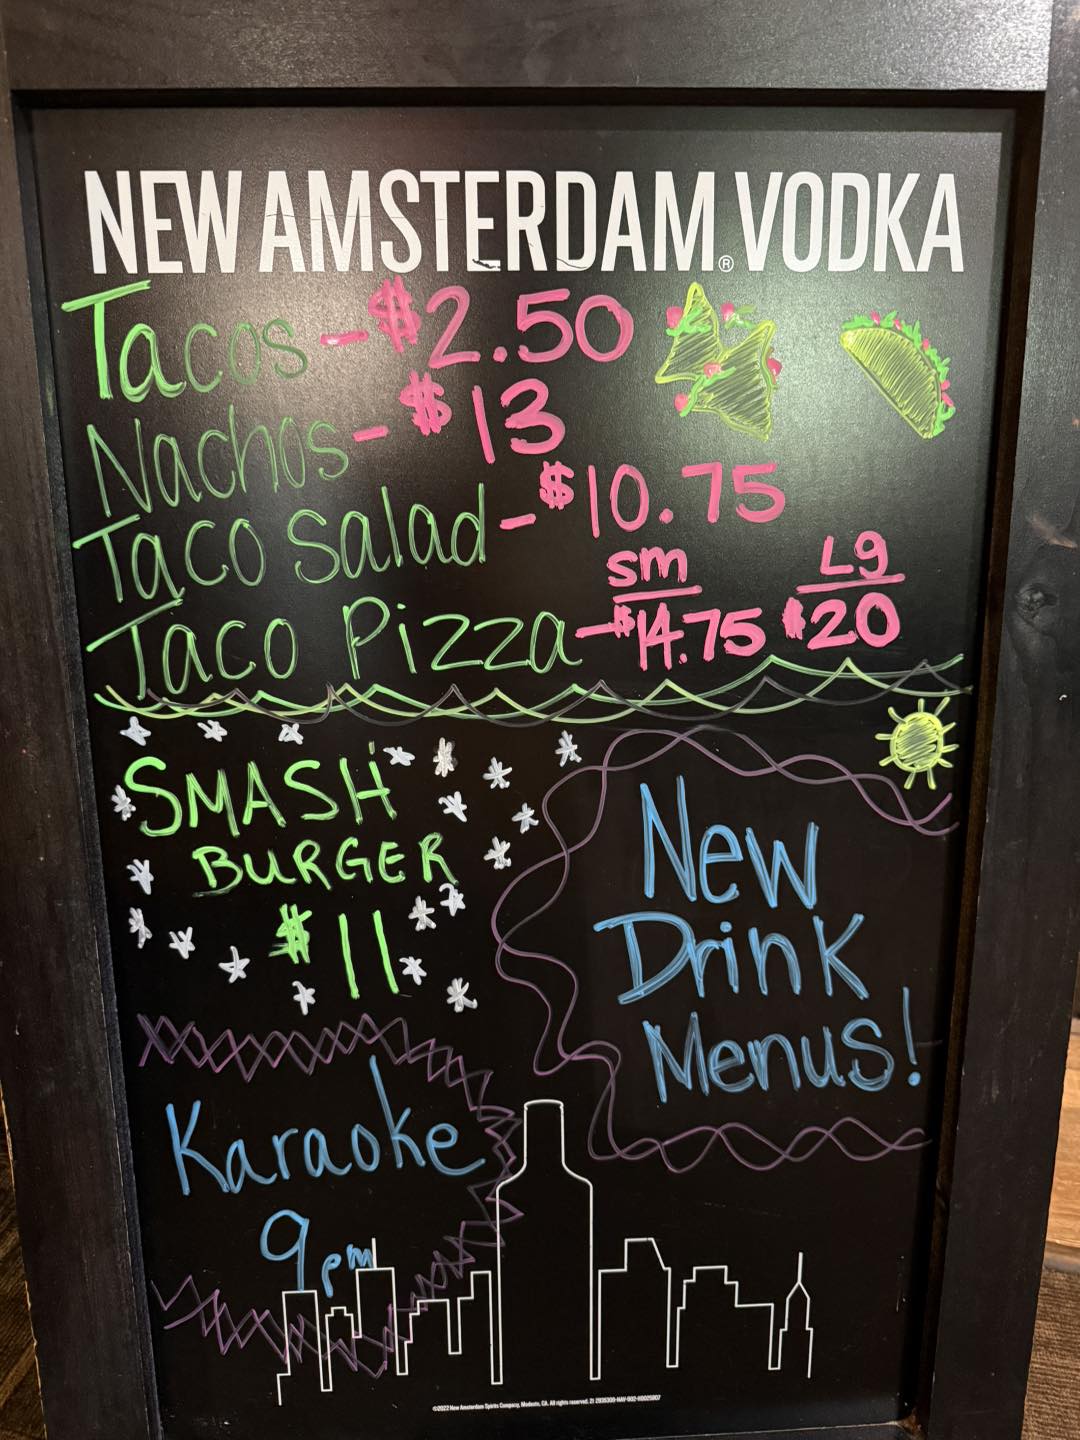 NEW AMSTERDAM® VODKA
Tacos - $2.50
Nachos - $13
Taco Salad - $10.75
sm Lg
Taco Pizza - $14.75 $20
SMASH
BURGER
$11
New
Drink
Menus!
Karaoke
9pm
©2022 New Amsterdam Spirits Company, Modesto, CA. All rights reserved.